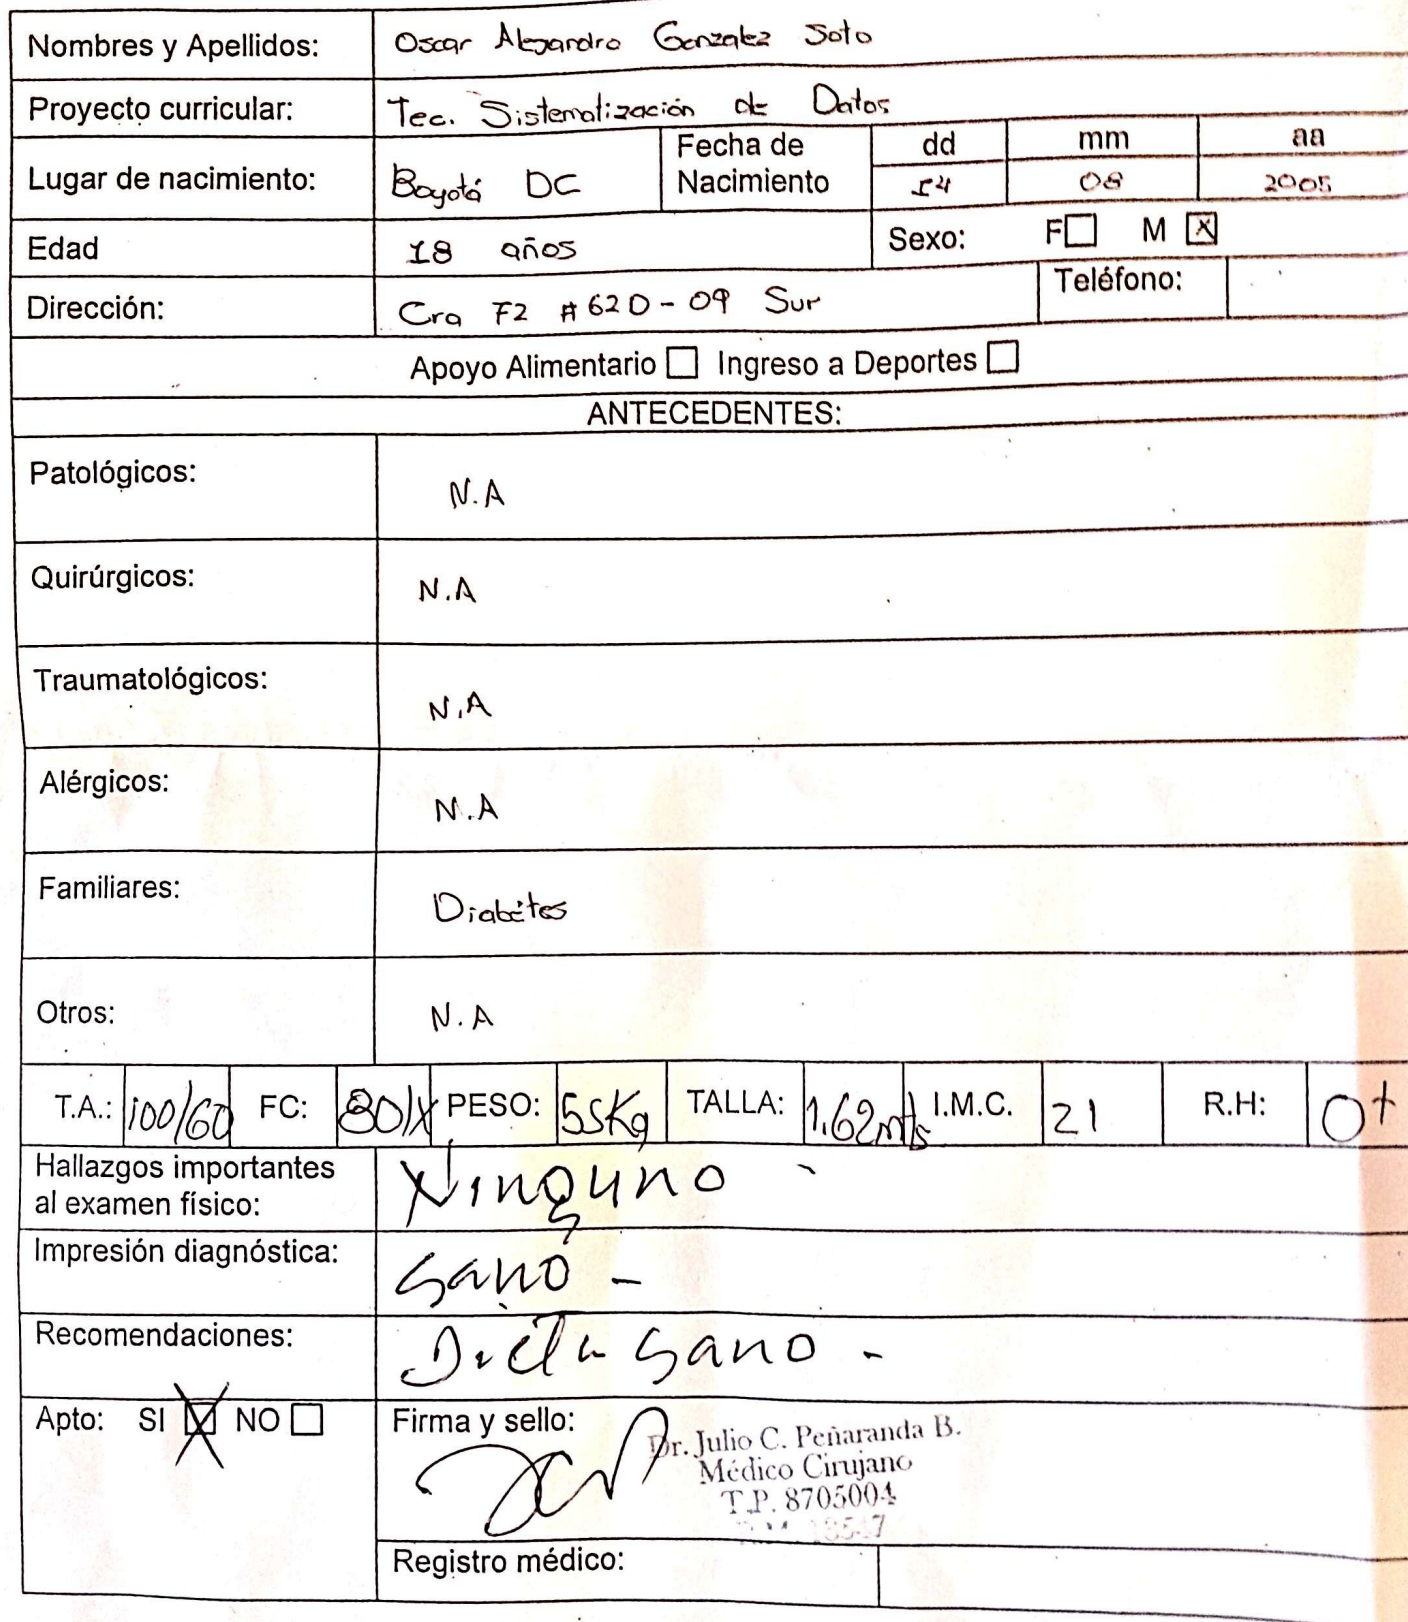 Nombres y Apellidos: Oscar Alejandro Gonzalez Soto
Proyecto curricular: Tec. Sistematización de Datos
Lugar de nacimiento: Bogotá DC Fecha de Nacimiento dd mm aa
14 08 2005
Edad 18 años Sexo: F☐ M ☒
Dirección: Cra 72 # 62D-09 Sur Teléfono:
Apoyo Alimentario ☐ Ingreso a Deportes ☐
ANTECEDENTES:
Patológicos: N.A
Quirúrgicos: N.A
Traumatológicos: N.A
Alérgicos: N.A
Familiares: Diabétes
Otros: N.A
T.A.: 100/60 FC: 80/X PESO: 55Kg TALLA: 1.62mts I.M.C. 21 R.H: O+
Hallazgos importantes
al examen físico: Ninguno -
Impresión diagnóstica: Sano -
Recomendaciones: Dieta Sano -
Apto: SI ☒ NO ☐ Firma y sello:
Dr. Julio C. Peñaranda B.
Médico Cirujano
T.P. 8705004
18547
Registro médico: